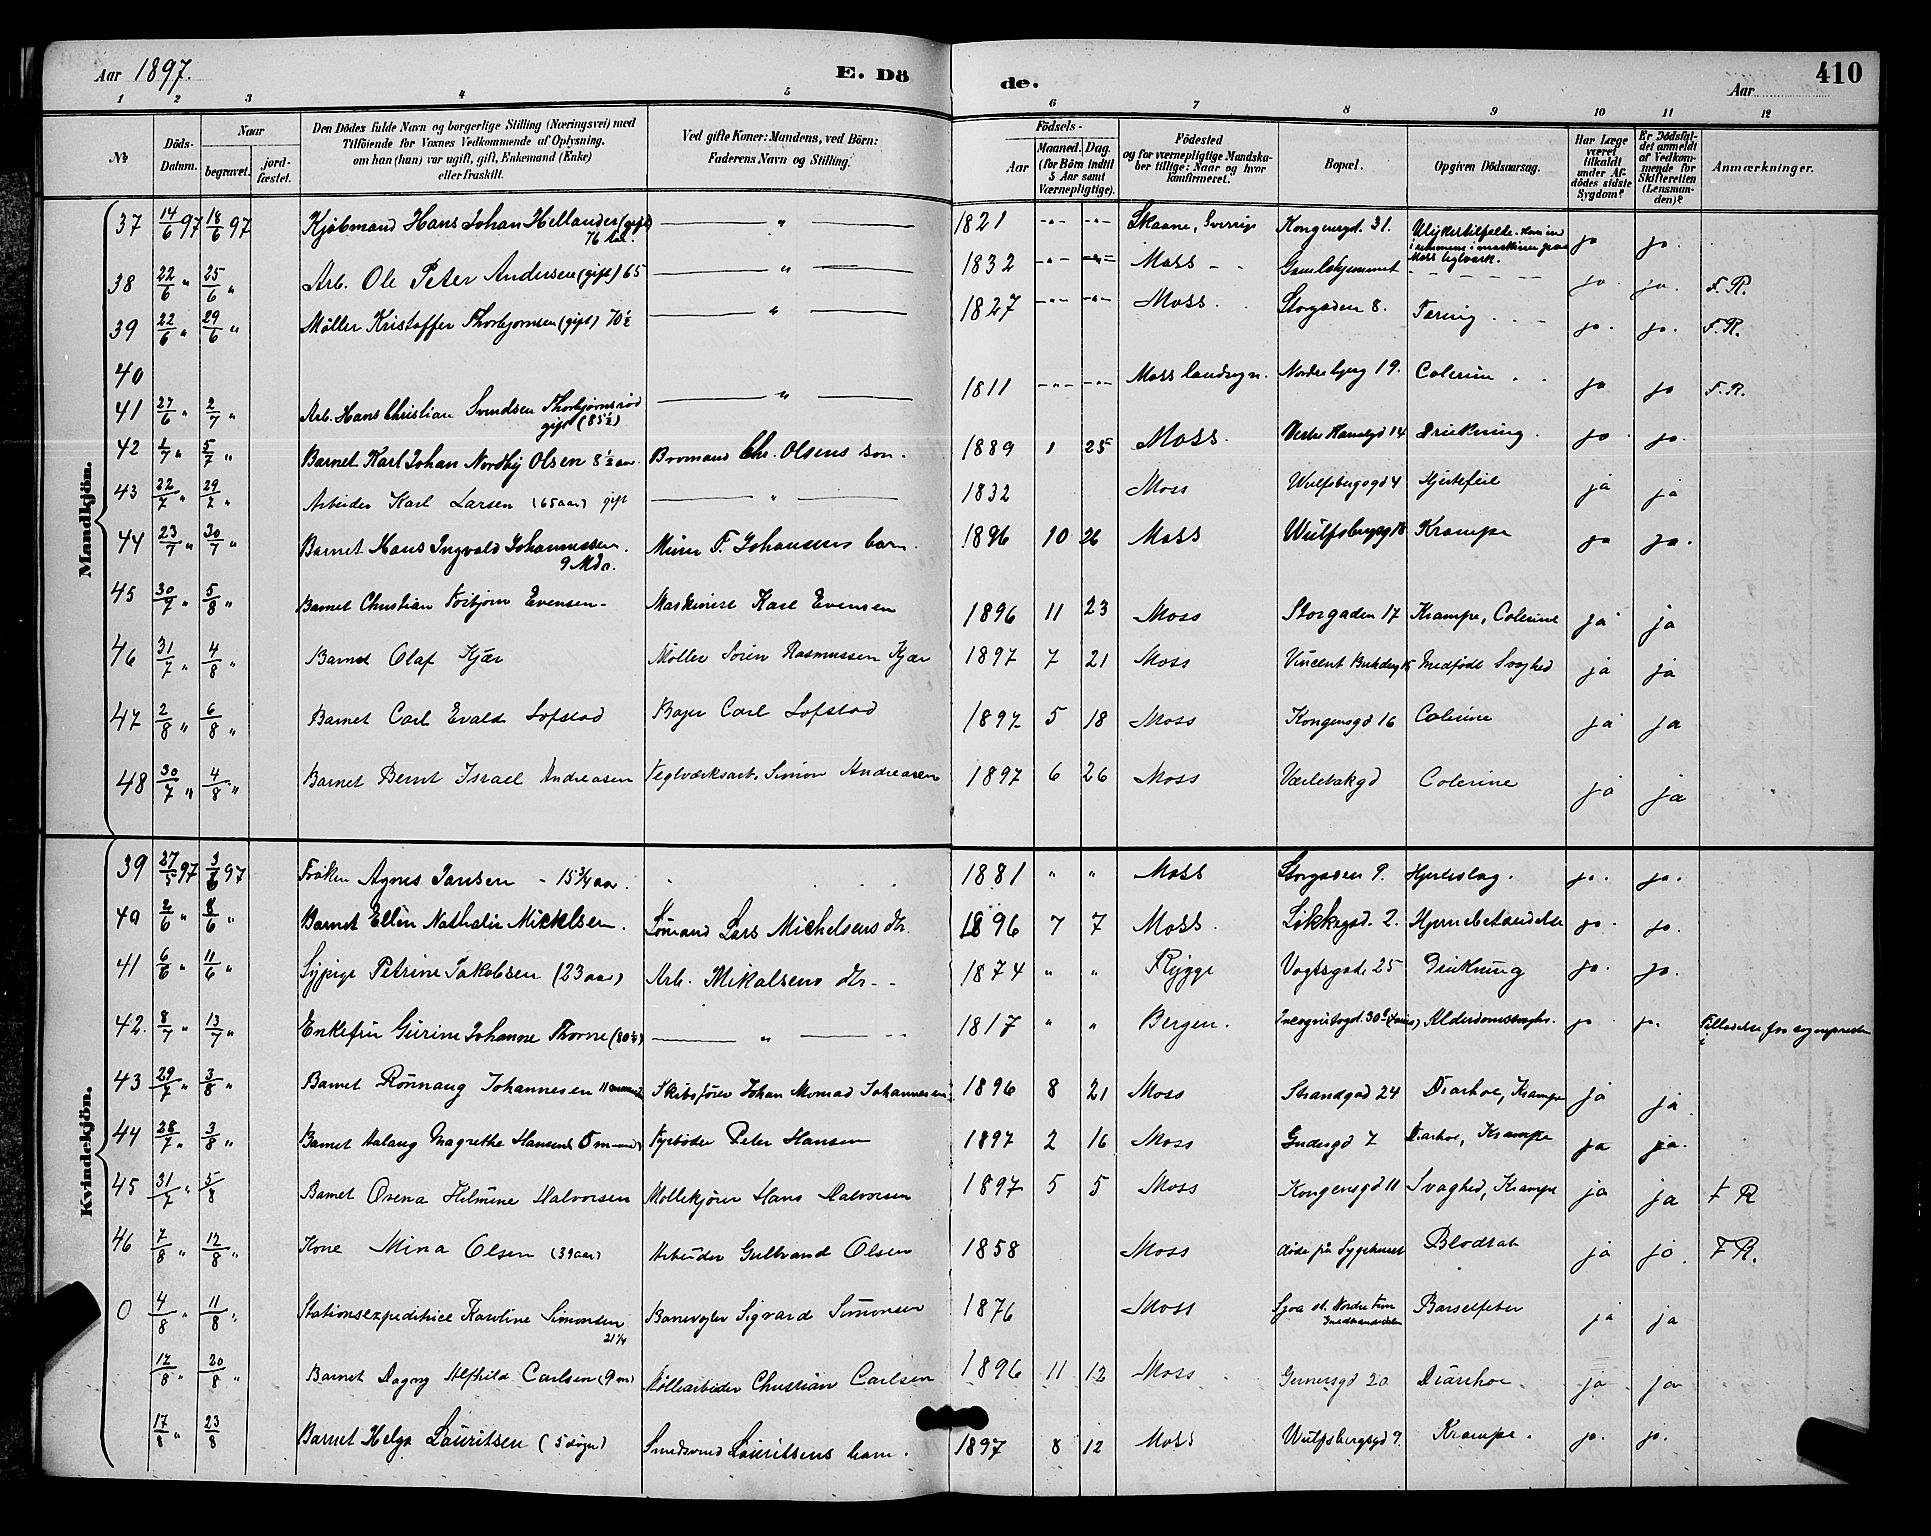 Aar 1897.
E. Dö
de.
Aar
410
1 2 3 4 5 6 7 8 9 10 11 12
No
Döds-
Datum.
Naar
begravet.
jord-
fæstet.
Den Dödes fulde Navn og borgerlige Stilling (Næringsvei) med
Tilföiende for Voxnes Vedkommende af Oplysning,
om han (hun) var ugift, gift, Enkemand (Enke)
eller fraskilt.
Ved gifte Koner: Mandens, ved Börn:
Faderens Navn og Stilling.
Födsels-
Aar
Maaned.
Dag.
(for Börn indtil
5 Aar samt
Værnepligtige).
Födested
og for værnepligtige Mandska-
ber tillige: Naar og hvor
konfirmeret.
Bopæl.
Opgiven Dödsaarsag.
Har Læge
været
tilkaldt
under Af-
dödes sidste
Sygdom?
Er Dödsfal-
det anmeldt
af Vedkom-
mende for
Skifteretten
(Lensman-
den)?
Anmærkninger.
Mandkjön.
37 14/6 97 18/6 97 Kjøbmand Hans Johan Hellander (gift) 76 " 1821 -"- -"- Skaane, Sverrige Kongensgd. 31. Ulykkestilfælde. Moss Teglværk. ja ja.
38 22/6 " 25/6 " Arb. Ole Peter Andersen (gift) 65 " 1832 -"- -"- Moss Gamlehjemmet ja. ja. F. R.
39 22/6 " 29/6 " Møller Kristoffer Thorbjornsen (gift) 70½ " 1827 -"- -"- Moss. Storgaden 8. Tæring ja. ja. F. R.
40
41 27/6 " 2/7 " Arb. Hans Christian Svendsen Thorbjørnsrød gift (85½) " 1811 -"- -"- Moss landsogn. Nordre bjerg 19. Colerine ja ja F. R.
42 1/7 " 5/7 " Barnet Karl Johan Nordby Olsen 8½ aar. Bromand Chr. Olsens søn. 1889 1 25 Moss. Vestre Kanalgd 14 Drukning. ja. ja.
43 22/7 " 29/7 " Arbeider Karl Larsen (65 aar) gift " 1832 Moss Wulfsbergsgd 4 Hjertefeil ja ja
44 23/7 " 30/7 " Barnet Hans Ingvald Johannessen. 9 Mdr. Murer F. Johansens barn. 1896 10 26 Moss Wulfsbergsgd 18 Krampe ja ja.
45 30/7 " 5/8 " Barnet Christian Torbjørn Evensen. Maskinist Karl Evensen 1896 11 23 Moss Storgaden 17 Krampe, Colerine ja ja
46 31/7 " 4/8 " Barnet Olaf Kjær Møller Søren Rasmussen Kjær 1897 7 21 Moss Vincent Medfødt Svaghed ja ja
47 2/8 " 6/8 " Barnet Carl Evald Lofstad Bager Carl Lofstad 1897 5 18 Moss Kongensgd 16 Colerine ja ja
48 30/7 " 4/8 " Barnet Bernt Israel Andreasen Teglværksarb. Simon Andreasen 1897 6 26 Moss Værlebakgd Colerine ja ja
Kvindekjön.
39 27/5 97 3/6 97 Frøken Agnes Jansen - 15¾ aar. 1881 " " Moss Storgaden 9. Hjerteslag. ja. ja.
40 2/6 " 8/6 " Barnet Ellen Nathalie Mickelsen. Sømand Lars Michelsens dtr. 1896 7 7 Moss. 2. Hjernebetændelse ja. ja.
41 6/6 " 11/6 " Sypige Petrine Jakobsen (23 aar) Arb. Mikalsens dtr. 1874 " " Rygge Vogtsgade 25 Drukning ja. ja.
42. 8/7 " 13/7 " Enkefru Gurine Johanne Thorne (80½) " 1817 " " Bergen. Incognitogd. 30 Alderdomssvaghed. ja. ja. Tilladelse fra sognepresten
43 29/7 " 3/8 " Barnet Rønnaug Johannesen 11 maaneder Skibsfører Johan Monrad Johannesen 1896 8 21 Moss Strandgad 24 Diarhoe, Krampe ja ja
44 28/7 " 3/8 " Barnet Aslaug Magrethe Hansen 5 maaned Fyrbøder Peter Hansen 1897 2 16 Moss Gudesgd 7 Diarhoe, Krampe ja ja.
45 31/7 " 5/8 Barnet Ovena Helmine Halvorsen Møllekjører Hans Halvorsen 1897 5 5 Moss Kongensgd 11 Svaghed, Krampe ja ja F R
46 7/8 " 12/8 " Kone Mina Olsen (39 aar) Arbeider Gulbrand Olsen 1858 Moss døde på Sygehuset Blodtab ja ja. F R.
0 4/8 " 11/8 " Stationsexpeditrice Karoline Simonsen 21¼ Banevogter Sigvard Simonsen 1876 Moss Nordre Barselfeber ja ja
12/8 " 20/8 " Barnet Dagny Alfhild Carlsen (9 m) Møllearbeider Christian Carlsen 1896 11 12 Moss Gernersgd 20 Diarrhoe. ja ja
17/8 " 23/8 Barnet Helga Lauritsen (5 døgn) Smedsvend Lauritsens barn. 1897 8 12 Moss Wulfsbergsgd 9. Krampe. ja. ja.